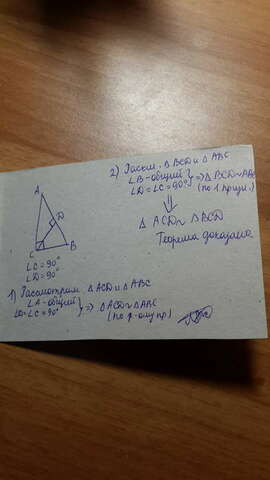 A
D
C
B
∠C = 90°
∠D = 90°
1) Рассмотрим △ACD и △ABC
∠A - общий
∠D = ∠C = 90° } => △ACD ~ △ABC
(по
2) Рассм. △BCD и △ABC
∠B - общий
∠D = ∠C = 90° } => △BCD ~ △ABC
(по 1 призн.)
⇓
△ACD ~ △BCD
Теорема доказана.